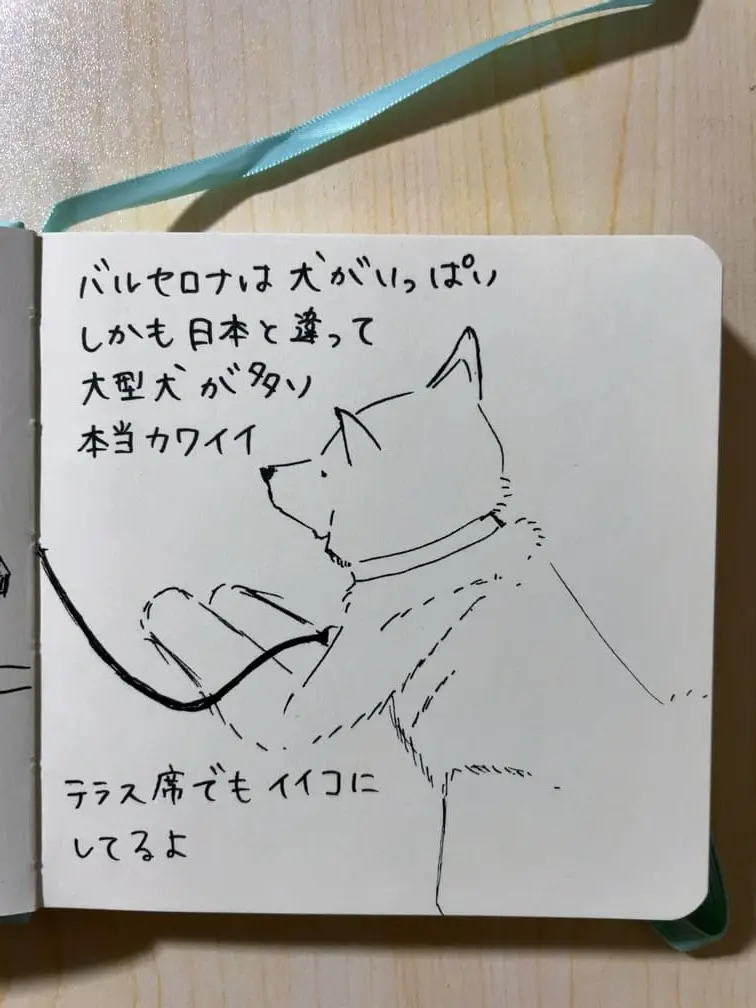 バルセロナは犬がいっぱい
しかも日本と違って
大型犬が多い
本当カワイイ
テラス席でもイイコに
してるよ